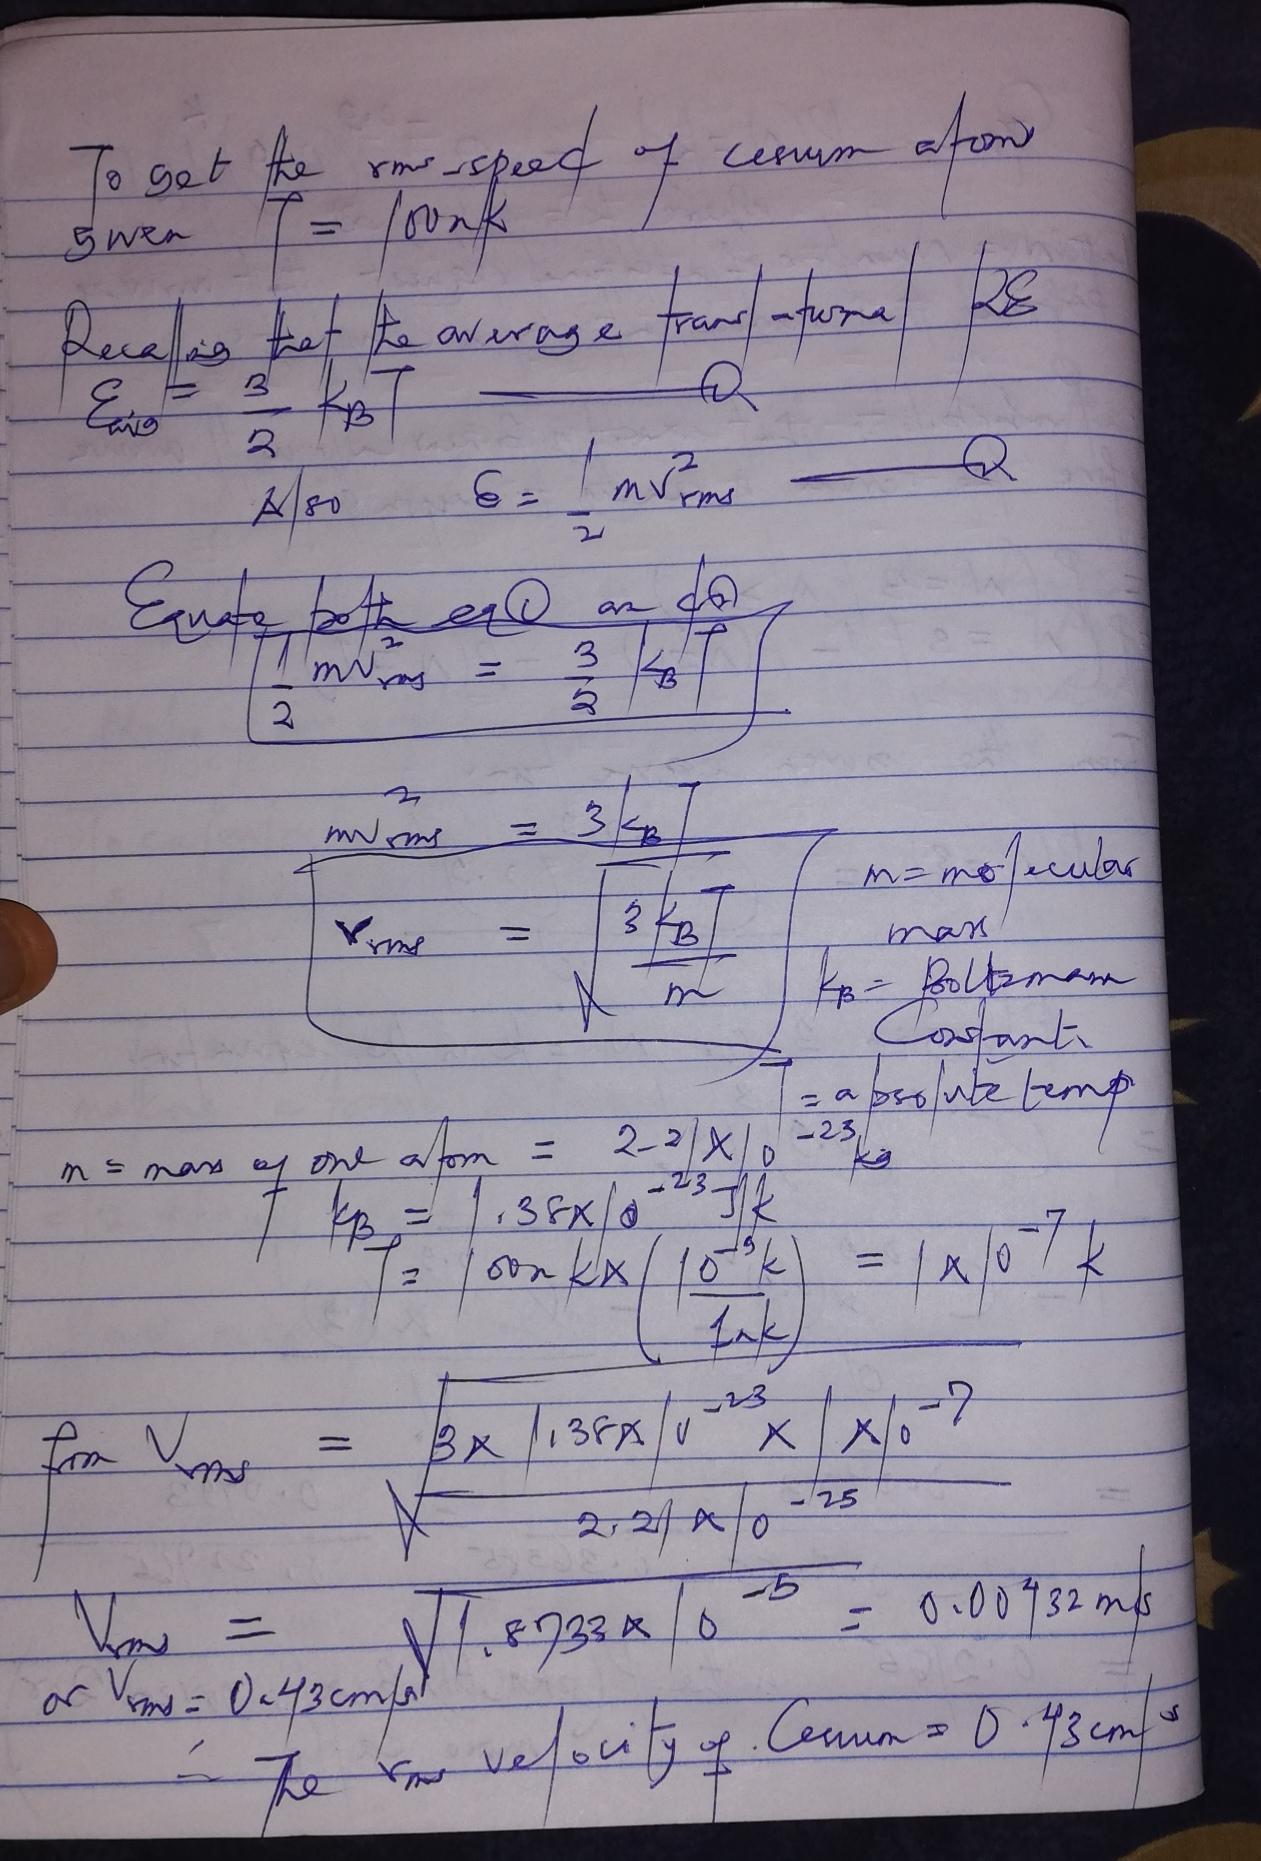 To get the rms speed of cesium atoms
given T = 100nK
Recalling that the average translational KE
Ɛavg = 3/2 kBT ——— ①
Also Ɛ = 1/2 mv²rms ——— ②
Equate both eq ① and ②
1/2 mv²rms = 3/2 kBT
mv²rms = 3kBT
vrms = √(3kBT/m)
m = molecular
mass
kB = Boltzmann
Constant
T = absolute temp
m = mass of one atom = 2.21 x 10⁻²³ kg
kB = 1.38x10⁻²³ J/k
T = 100nk x (10⁻⁹k/1nk) = 1x10⁻⁷ k
from Vrms = √(3x 1.38x10⁻²³ x 1 x10⁻⁷ / 2.21 x 10⁻²⁵)
Vrms = √1.8733x10⁻⁵ = 0.00432 m/s
or Vrms = 0.43cm/s
∴ The rms velocity of Cesium = 0.43cm/s